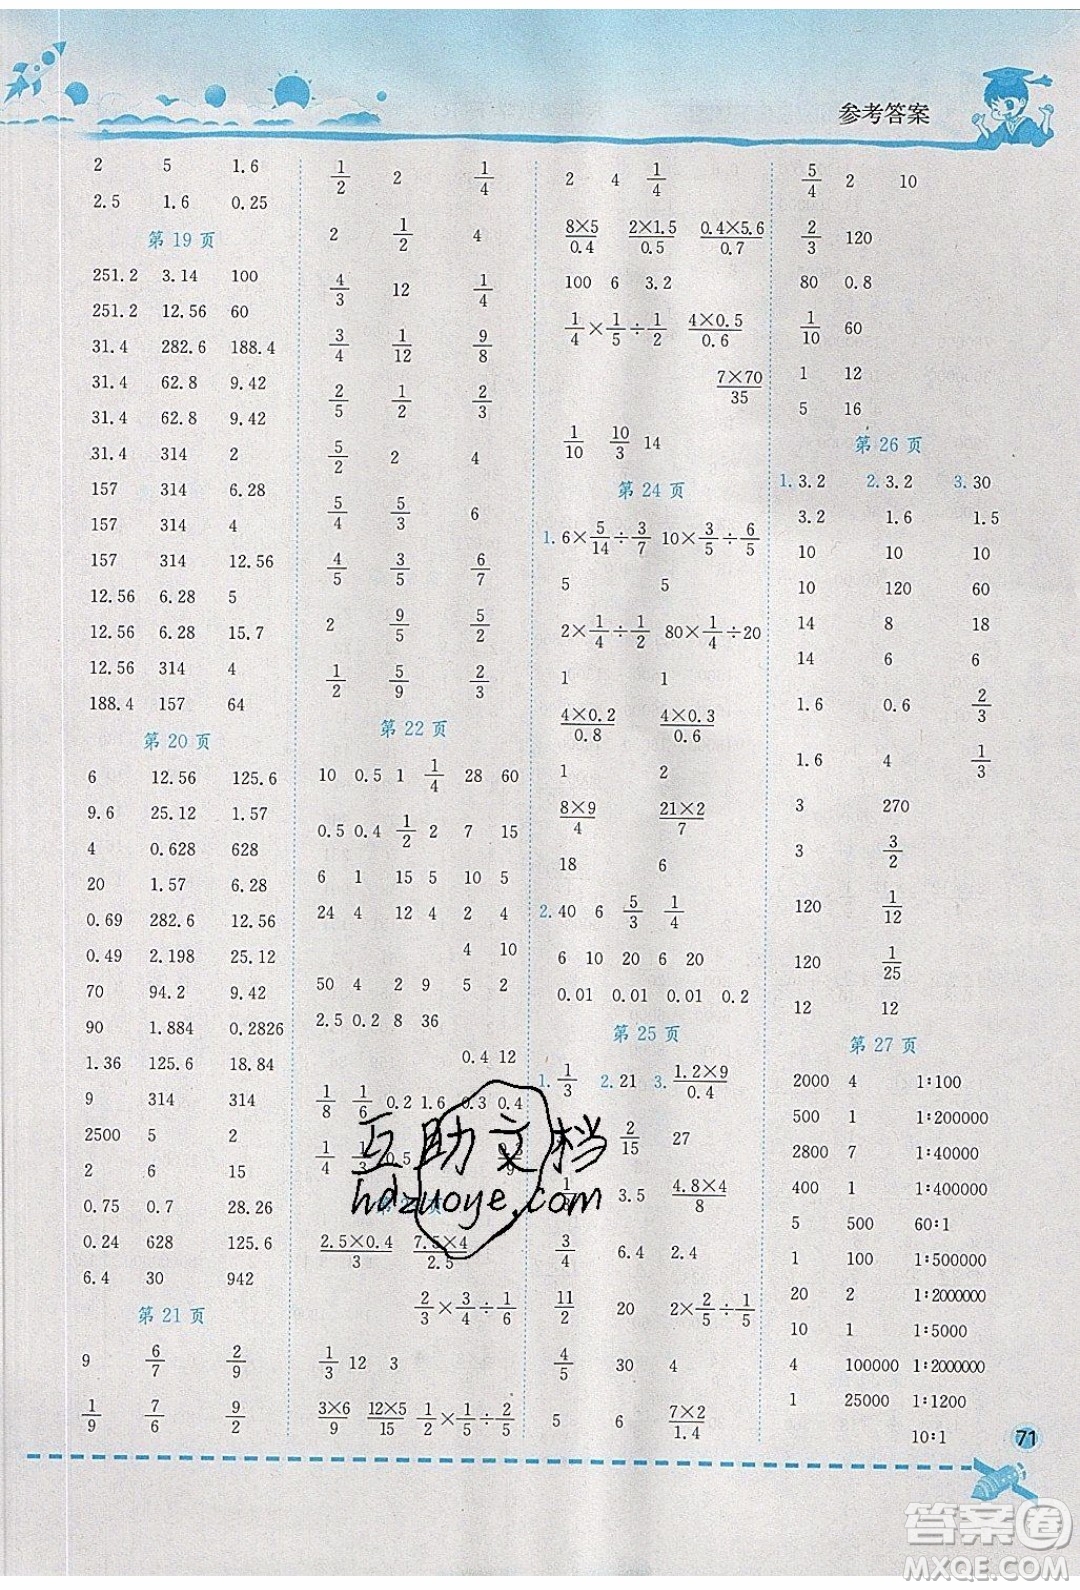 参考答案
2 5 1.6
2.5 1.6 0.25
第 19 页
251.2 3.14 100
251.2 12.56 60
31.4 282.6 188.4
31.4 62.8 9.42
31.4 62.8 9.42
31.4 314 2
157 314 6.28
157 314 4
157 314 12.56
12.56 6.28 5
12.56 6.28 15.7
12.56 314 4
188.4 157 64
第 20 页
6 12.56 125.6
9.6 25.12 1.57
4 0.628 628
20 1.57 6.28
0.69 282.6 12.56
0.49 2.198 25.12
70 94.2 9.42
90 1.884 0.2826
1.36 125.6 12.56
9 314 314
2500 5 2
2 6 15
0.75 0.7 28.26
0.24 628 125.6
6.4 30 942
第 21 页
9 6/7 2/9
1/9 7/6 9/2
1/2 2 1/4
2 1/2 4
4/3 12 1/4
3/4 1/12 9/8
2/5 1/2 2/3
5/2 2 4
5/4 5/3 6
4/5 3/5 6/7
2 9/5 5/2
1/2 5/9 2/3
第 22 页
10 0.5 1 1/4 28 60
0.5 0.4 1/2 2 7 15
6 1 15 5 10 5
24 4 12 4 2 4
4 10
50 4 2 9 5 2
2.5 0.2 8 36
0.4 12
1/8 1/6 0.2 1.6 0.3 0.4
1/4 1/3 0.5
页
2.5×0.4/3 7.5×4/2.5
2/3×3/4÷1/6
1/3 12 3
3×6/9 12×5/15 1/2×1/5÷2/5
2 4 1/4
8×5/0.4 2×1.5/0.5 0.4×5.6/0.7
100 6 3.2
1/4×1/5÷1/2 4×0.5/0.6
7×70/35
1/10 10/3 14
第 24 页
1. 6×5/14÷3/7 10×3/5÷6/5
5 5
2×1/4÷1/2 80×1/4÷20
1 1
4×0.2/0.8 4×0.3/0.6
1 2
8×9/4 21×2/7
18 6
2. 40 6 5/3 1/4
6 10 20 6 20
0.01 0.01 0.01 0.2
第 25 页
1. 1/3 2. 21 3. 1.2×9/0.4
2/15 27
3.5 4.8×4/8
3/4 6.4 2.4
11/2 20 2×2/5÷1/5
4/5 30 4
5 6 7×2/1.4
5/4 2 10
2/3 120
80 0.8
1/10 60
1 12
5 16
第 26 页
1. 3.2 2. 3.2 3. 30
3.2 1.6 1.5
10 10 10
10 120 60
14 8 18
14 6 6
1.6 0.6 2/3
1.6 4 1/3
3 270
3 3/2
120 1/12
120 1/25
12 12
第 27 页
2000 4 1∶100
500 1 1∶200000
2800 7 1∶40000
400 1 1∶400000
5 500 60∶1
1 100 1∶5000
20 2 1∶2000000
10 1 1∶5000
4 100000 1∶2000000
1 25000 1∶1200
10∶1
71
互助文档
hdzuoye.com
答案圈
MXQE.COM